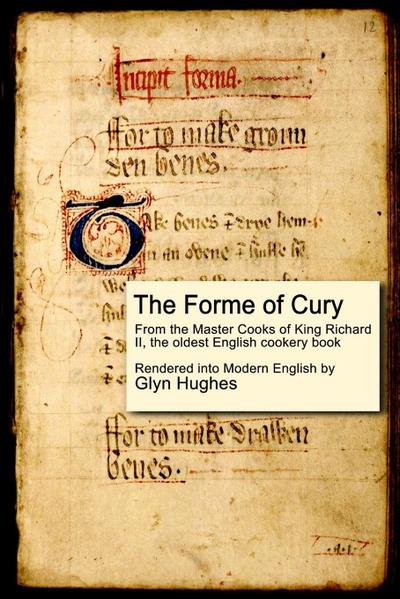 12
Incipit forma.
For to make gronn
den benes.
Take benes & drye hem
in an ovene & hulle hē
The Forme of Cury
From the Master Cooks of King Richard
II, the oldest English cookery book
Rendered into Modern English by
Glyn Hughes
For to make drawen
benes.